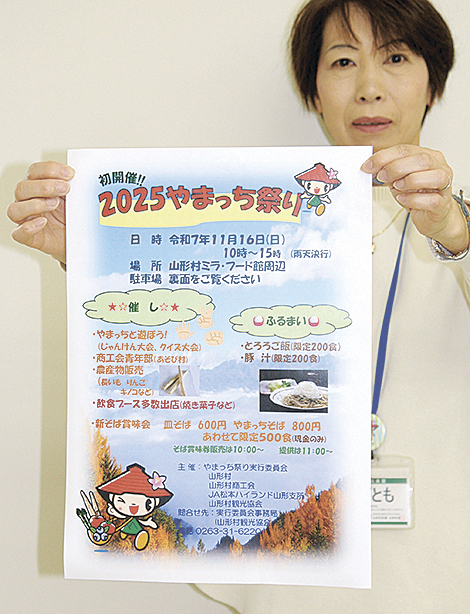 初開催!!
2025やまっち祭り
日 時 令和7年11月16日(日)
10時〜15時 (雨天決行)
場 所 山形村ミラ・フード館周辺
駐車場 裏面をご覧ください
☆☆催 し☆☆
・やまっちと遊ぼう!
(じゃんけん大会、クイズ大会)
・商工会青年部(あそび村)
・農産物販売
(長いも りんご
キノコなど)
・飲食ブース多数出店(焼き菓子など)
ふるまい
・とろろご飯(限定200食)
・豚 汁(限定200食)
・新そば賞味会 皿そば 600円 やまっちそば 800円
あわせて限定500食(現金のみ)
そば賞味券販売は10:00〜 提供は11:00〜
主 催:やまっち祭り実行委員会
山形村
山形村商工会
JA松本ハイランド山形支所
山形村観光協会
問合せ先:実行委員会事務局
(山形村観光協会
0263-31-6220
とも